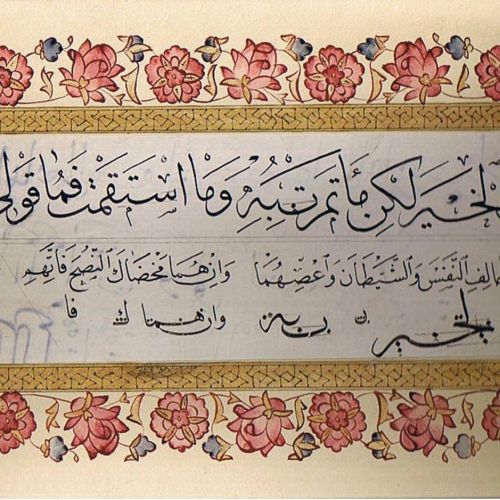 لخَيرَ لكِن مَأتَمَرتُ بِهِ وَمَا اسْتَقَمْتُ فَمَا قَولي
الِفِ النَّفْسَ وَالشَّيْطَانَ وَاعْصِهِمَا وَاِنْ هُمَا مَحَضَاكَ النُّصْحَ فَاتَّهِمِ
الخير ن ربه وان هما ك فا